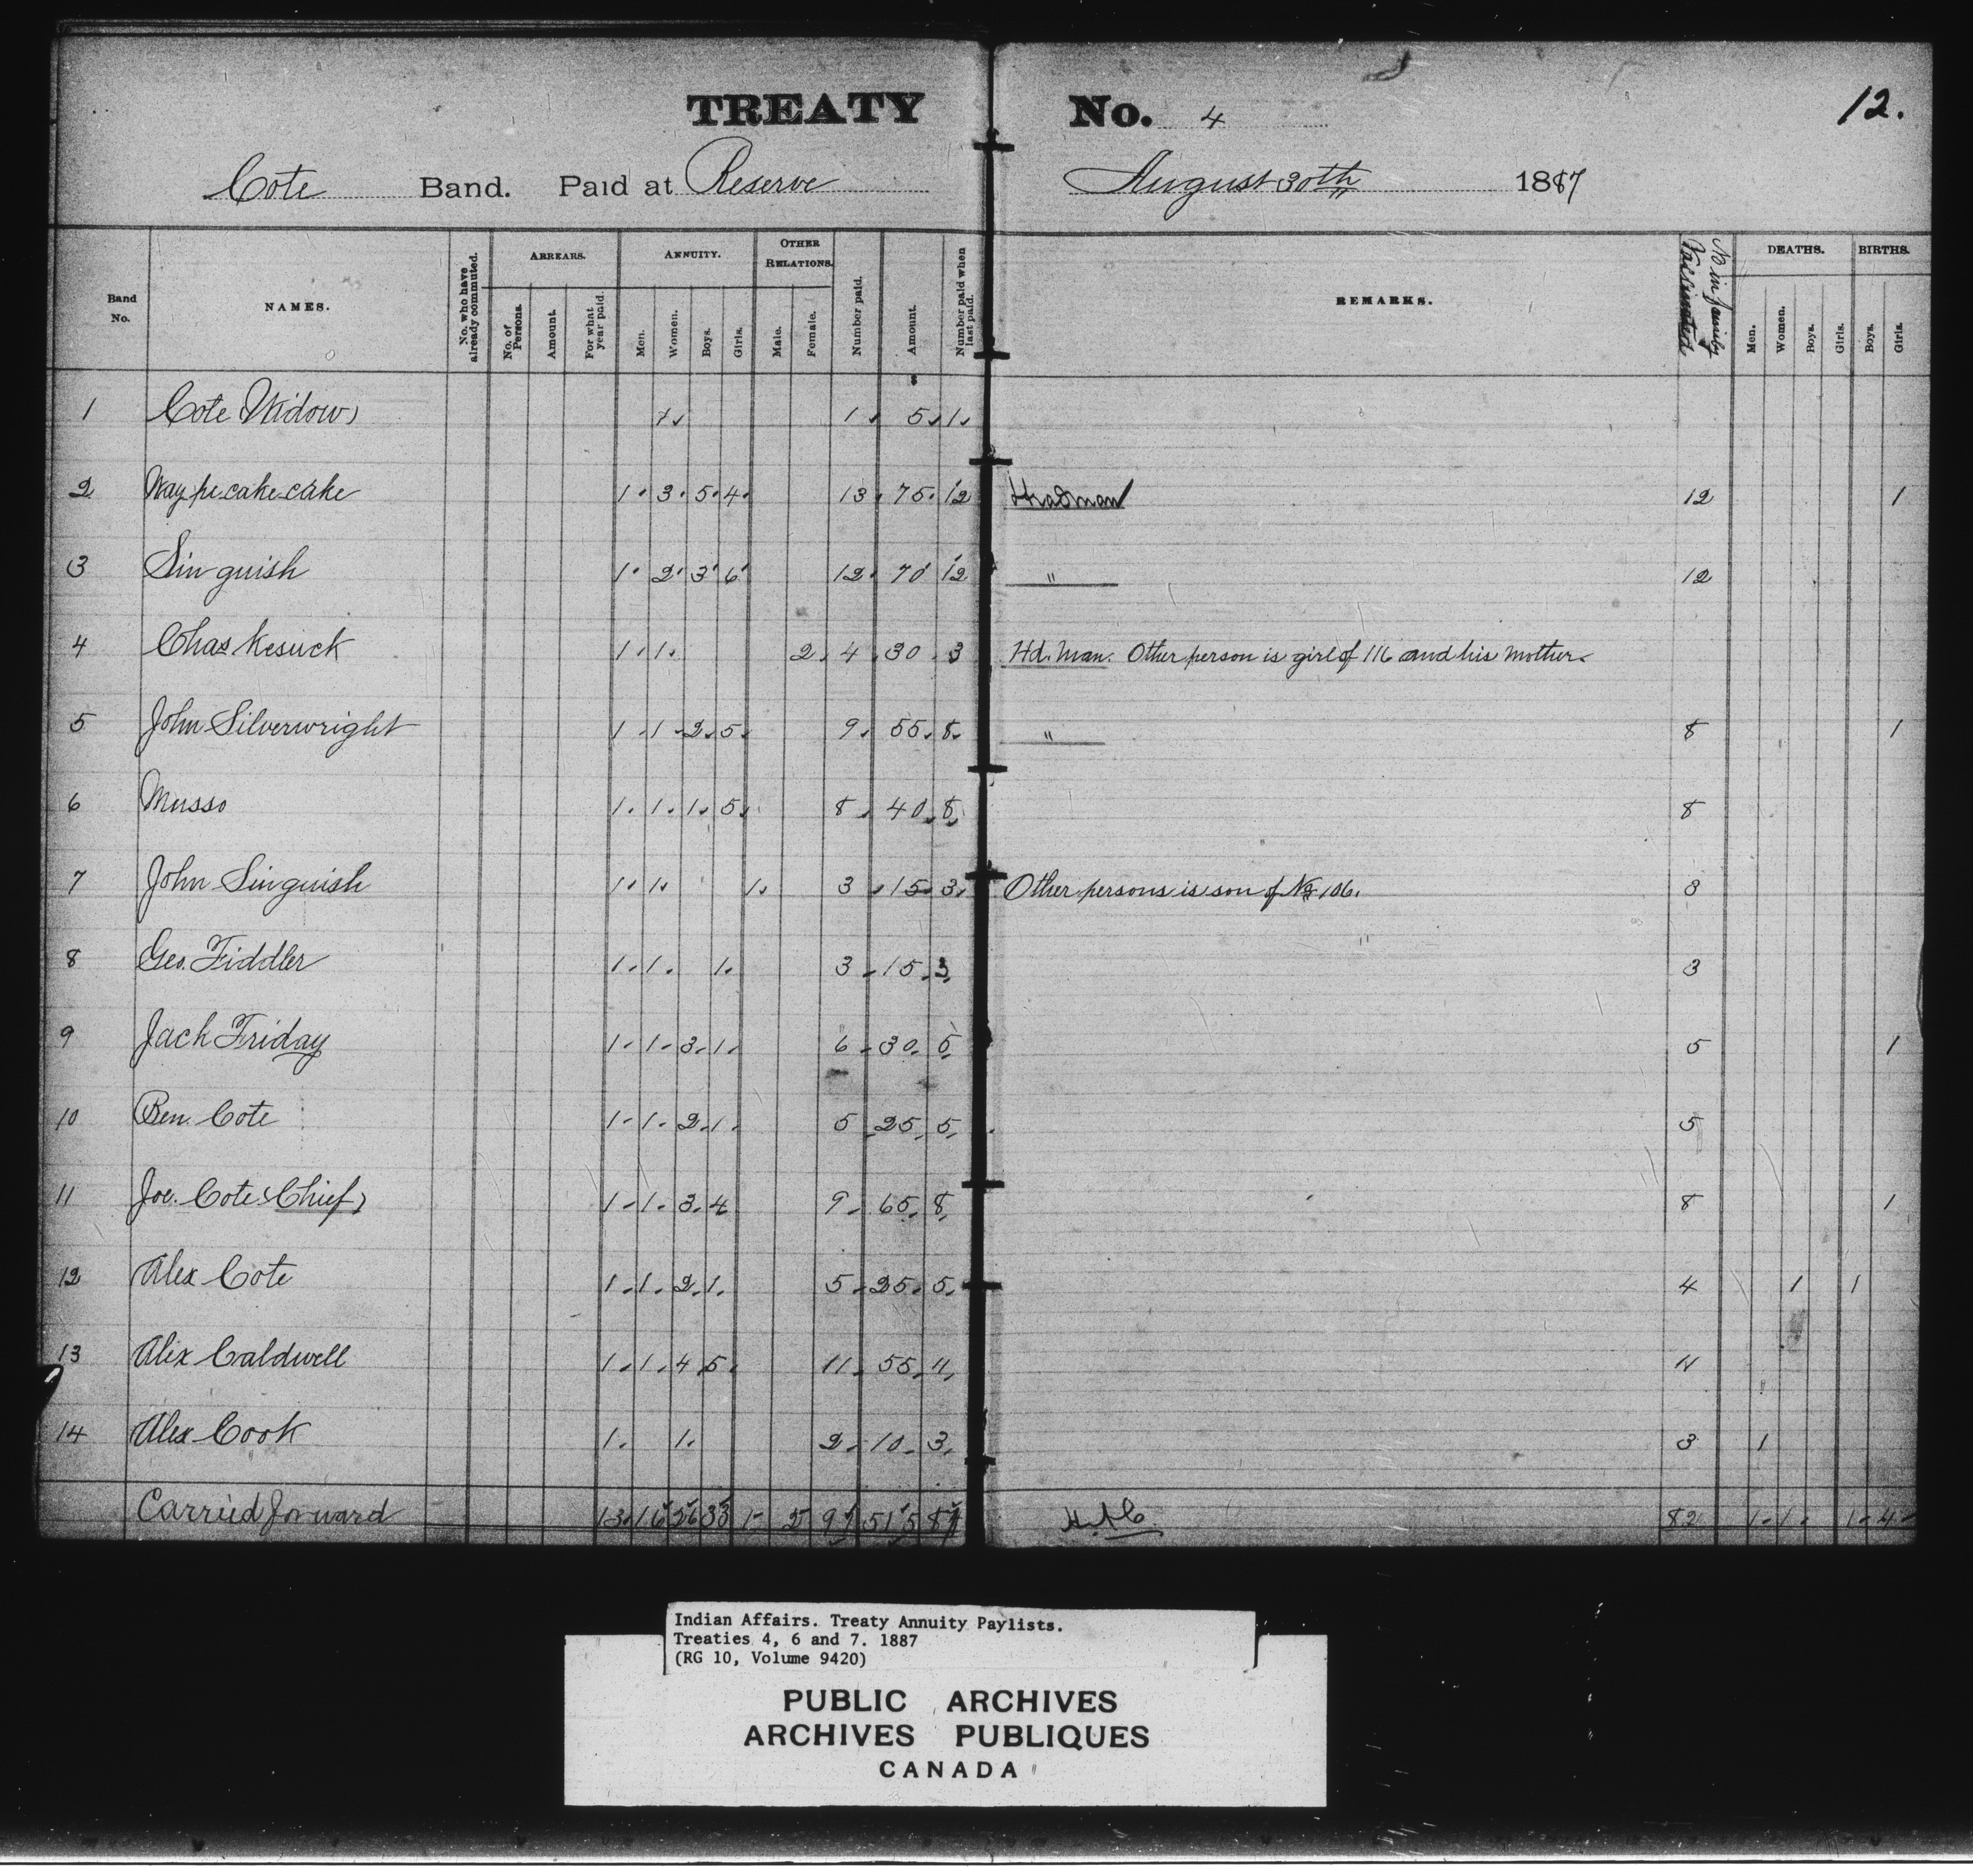 TREATY No. 4 12.
Cote Band. Paid at Reserve August 30th 1887
Band No. NAMES. No. who have already commuted. ARREARS. No. of Persons. Amount. For what year paid. ANNUITY. Men. Women. Boys. Girls. OTHER RELATIONS. Male. Female. Number paid. Amount. Number paid when last paid. REMARKS. No in family Vaccinated DEATHS. Men. Women. Boys. Girls. BIRTHS. Boys. Girls.
$
1 Cote Widow 1 1 5 1
2 Way pe cake cake 1 3 5 4 13 75 12 Headman 12 1
3 Sin guish 1 2 3 6 12 70 12 " 12
4 Chas Kesick 1 1 2 4 30 3 Hd. Man. Other person is girl of 116 and his mother.
5 John Silverwright 1 1 2 5 9 55 8 " 8 1
6 Musso 1 1 1 5 8 40 8 8
7 John Singuish 1 1 1 3 15 3 Other persons is son of No 106. 3
8 Geo. Fiddler 1 1 1 3 15 3 3
9 Jack Friday 1 1 3 1 6 30 5 5 1
10 Ben. Cote 1 1 2 1 5 25 5 5
11 Joe. Cote (Chief) 1 1 3 4 9 65 8 8 1
12 Alex Cote 1 1 2 1 5 25 5 4 1 1
13 Alex Caldwell 1 1 4 5 11 55 11 11
14 Alex Cook 1 1 2 10 3 3 1
Carried forward 13 16 26 33 1 2 91 515 87 82 1 1 1 4
Indian Affairs. Treaty Annuity Paylists.
Treaties 4, 6 and 7. 1887
(RG 10, Volume 9420)
PUBLIC ARCHIVES
ARCHIVES PUBLIQUES
CANADA